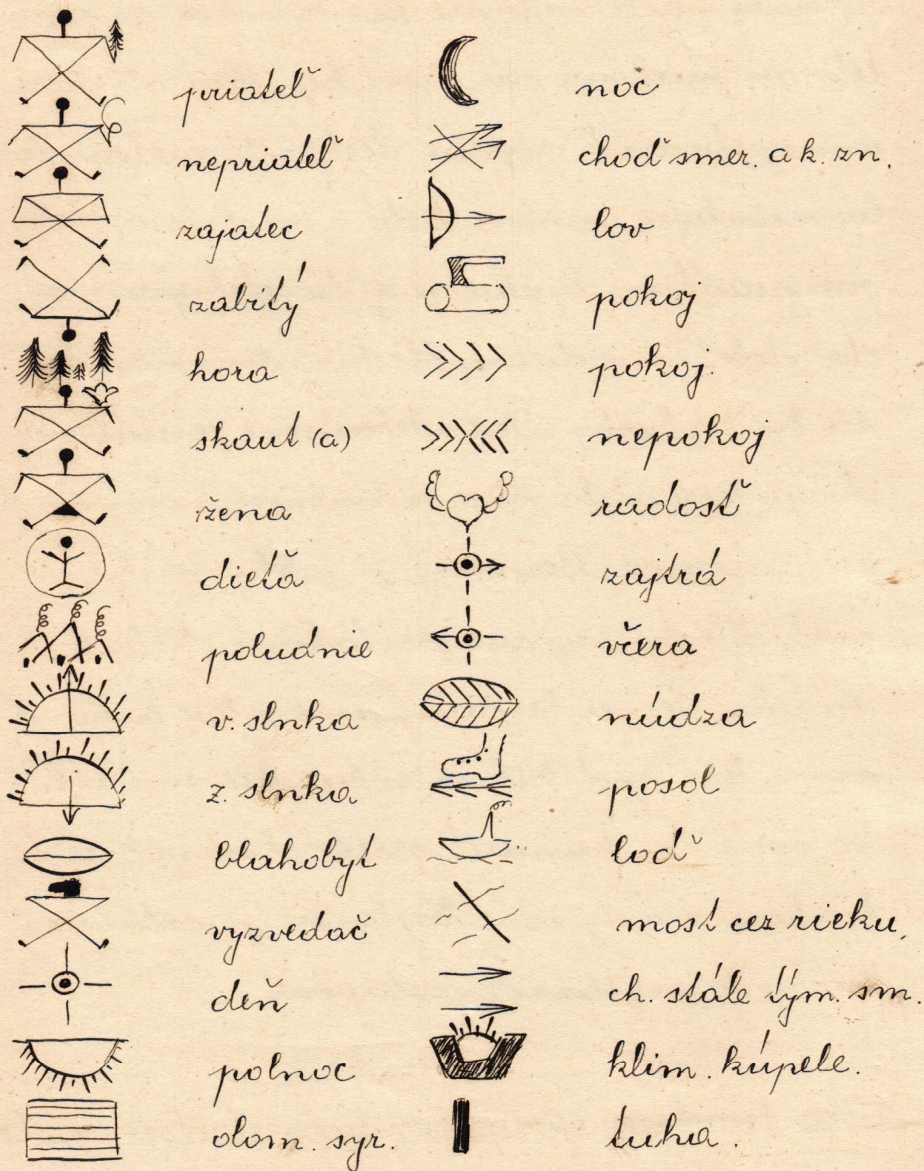 priateľ
nepriateľ
zajatec
zabitý
hora
skaut (a)
žena
dieťa
poludnie
v. slnka
z. slnka
blahobyt
vyzvedač
deň
polnoc
olom. syr.
noc
choď smer. a k. zn.
lov
pokoj
pokoj.
nepokoj
radosť
zajtrá
včera
núdza
posol
loď
most cez rieku,
ch. stále tým. sm.
klim. kúpele.
tuha.